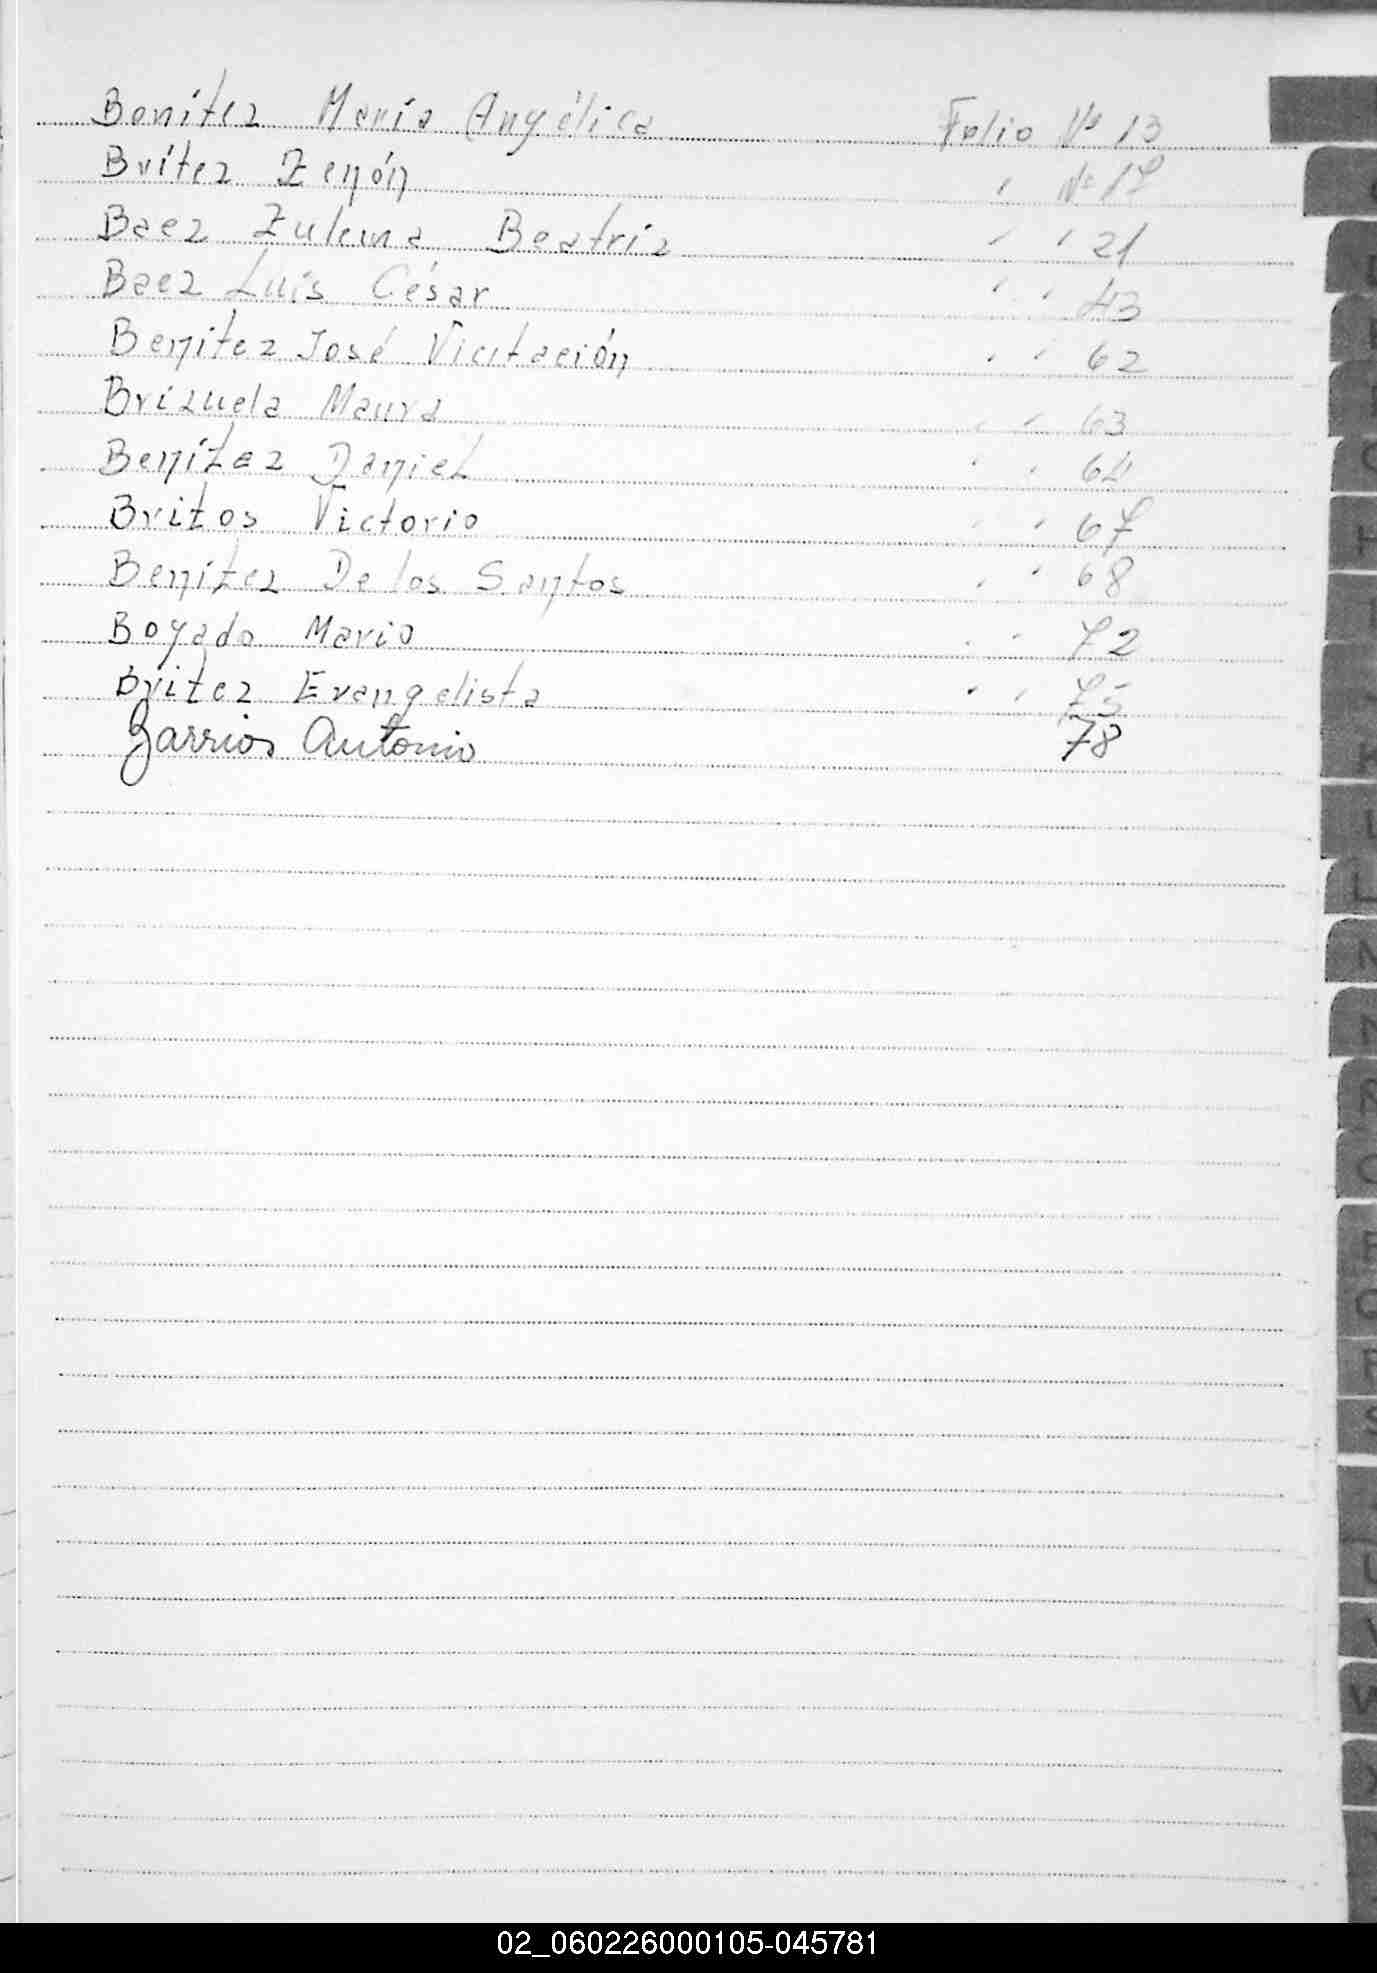 Benítez María Angélica Folio Nº 13
Brítez Zenón " Nº 17
Baez Zulema Beatriz " " 21
Baez Luis César " " 43
Benítez José Vicitación " " 62
Brizuela Maura " " 63
Benítez Daniel " " 64
Britos Victorio " " 67
Benítez De los Santos " " 68
Bogado Mario " " 72
Britez Evangelista " " 75
Barrios Antonio 78
02_060226000105-045781